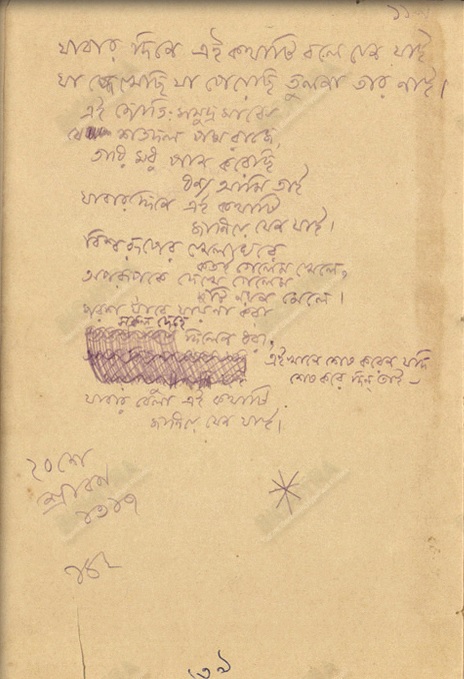 যাবার দিনে এই কথাটি বলে যেন যাই
যা দেখেছি যা পেয়েছি তুলনা তার নাই।
এই জ্যোতিঃসমুদ্র মাঝে
যে শতদল পদ্ম রাজে,
তারি মধু পান করেছি
ধন্য আমি তাই
যাবার দিনে এই কথাটি
জানিয়ে যেন যাই।
বিশ্বরূপের খেলাঘরে
কতই গেলেম খেলে,
অপরূপকে দেখে গেলেম
দুটি নয়ন মেলে।
পরশ যাঁরে যায়না করা
সকল দেহে
দিলেন ধরা,
এইখানে শেষ করেন যদি
শেষ করে দিন্ তাই –
যাবার বেলা এই কথাটি
জানিয়ে যেন যাই।
২০শে
শ্রাবণ
১৩১৭
১৪২